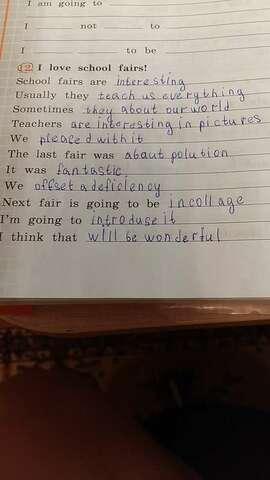 I am going to
I not to
I to be
12 I love school fairs!
School fairs are interesting
Usually they teach us everything
Sometimes they about our world
Teachers are interesting in pictures
We pleaced with it
The last fair was abaut polution
It was fantastic.
We offset a deficiency
Next fair is going to be in collage
I'm going to introduse it
I think that will be wonderful